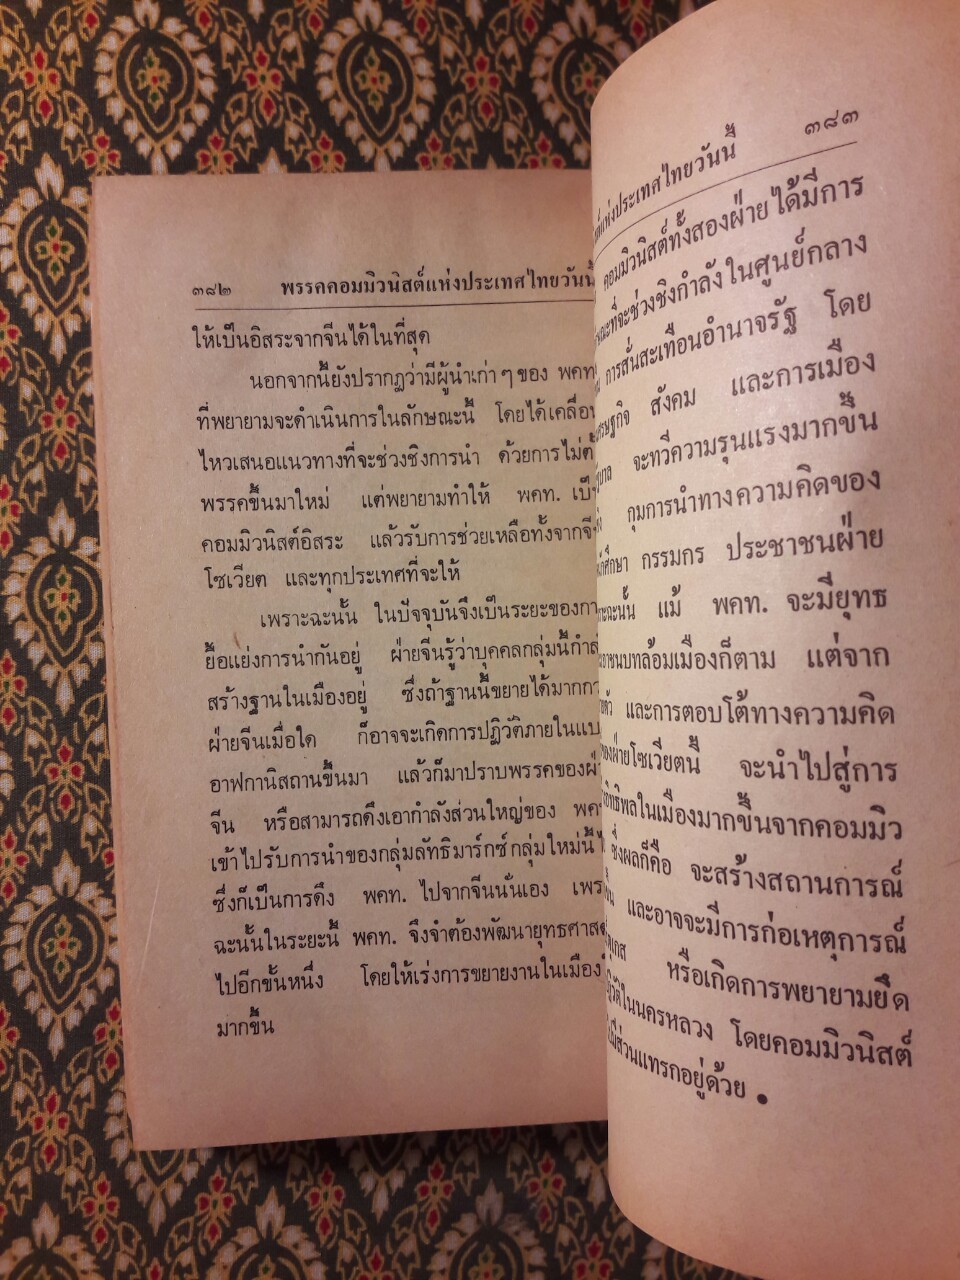 ๓๘๒ พรรคคอมมิวนิสต์แห่งประเทศไทยวันนี้
ให้เป็นอิสระจากจีนได้ในที่สุด
นอกจากนี้ยังปรากฏว่ามีผู้นำเก่า ๆ ของ พคท.
ที่พยายามจะดำเนินการในลักษณะนี้ โดยได้เคลื่อน
ไหวเสนอแนวทางที่จะช่วงชิงการนำ ด้วยการไม่ตั้
พรรคขึ้นมาใหม่ แต่พยายามทำให้ พคท. เป็น
คอมมิวนิสต์อิสระ แล้วรับการช่วยเหลือทั้งจากจีน
โซเวียต และทุกประเทศที่จะให้
เพราะฉะนั้น ในปัจจุบันจึงเป็นระยะของกา
ยื้อแย่งการนำกันอยู่ ฝ่ายจีนรู้ว่าบุคคลกลุ่มนี้กำลั
สร้างฐานในเมืองอยู่ ซึ่งถ้าฐานนี้ขยายได้มากกว
ฝ่ายจีนเมื่อใด ก็อาจจะเกิดการปฏิวัติภายในแบบ
อาฟกานิสถานขึ้นมา แล้วก็มาปราบพรรคของฝ่
จีน หรือสามารถดึงเอากำลังส่วนใหญ่ของ พคท
เข้าไปรับการนำของกลุ่มลัทธิมาร์กซ์กลุ่มใหม่นี้
ซึ่งก็เป็นการดึง พคท. ไปจากจีนนั่นเอง เพรา
ฉะนั้นในระยะนี้ พคท. จึงจำต้องพัฒนายุทธศาสต
ไปอีกขั้นหนึ่ง โดยให้เร่งการขยายงานในเมือง
มากขึ้น
ต์แห่งประเทศไทยวันนี้ ๓๘๓
คอมมิวนิสต์ทั้งสองฝ่ายได้มีการ
ณะที่จะช่วงชิงกำลังในศูนย์กลาง
การสั่นสะเทือนอำนาจรัฐ โดย
ศรษฐกิจ สังคม และการเมือง
บาล จะทวีความรุนแรงมากขึ้น
กุมการนำทางความคิดของ
กศึกษา กรรมกร ประชาชนฝ่าย
าะฉะนั้น แม้ พคท. จะมียุทธ
าชนบทล้อมเมืองก็ตาม แต่จาก
ตัว และการตอบโต้ทางความคิด
ของฝ่ายโซเวียตนี้ จะนำไปสู่การ
อิทธิพลในเมืองมากขึ้นจากคอมมิว
ซึ่งผลก็คือ จะสร้างสถานการณ์
ขึ้น และอาจจะมีการก่อเหตุการณ์
หรือเกิดการพยายามยึด
วัติในนครหลวง โดยคอมมิวนิสต์
มีส่วนแทรกอยู่ด้วย ●